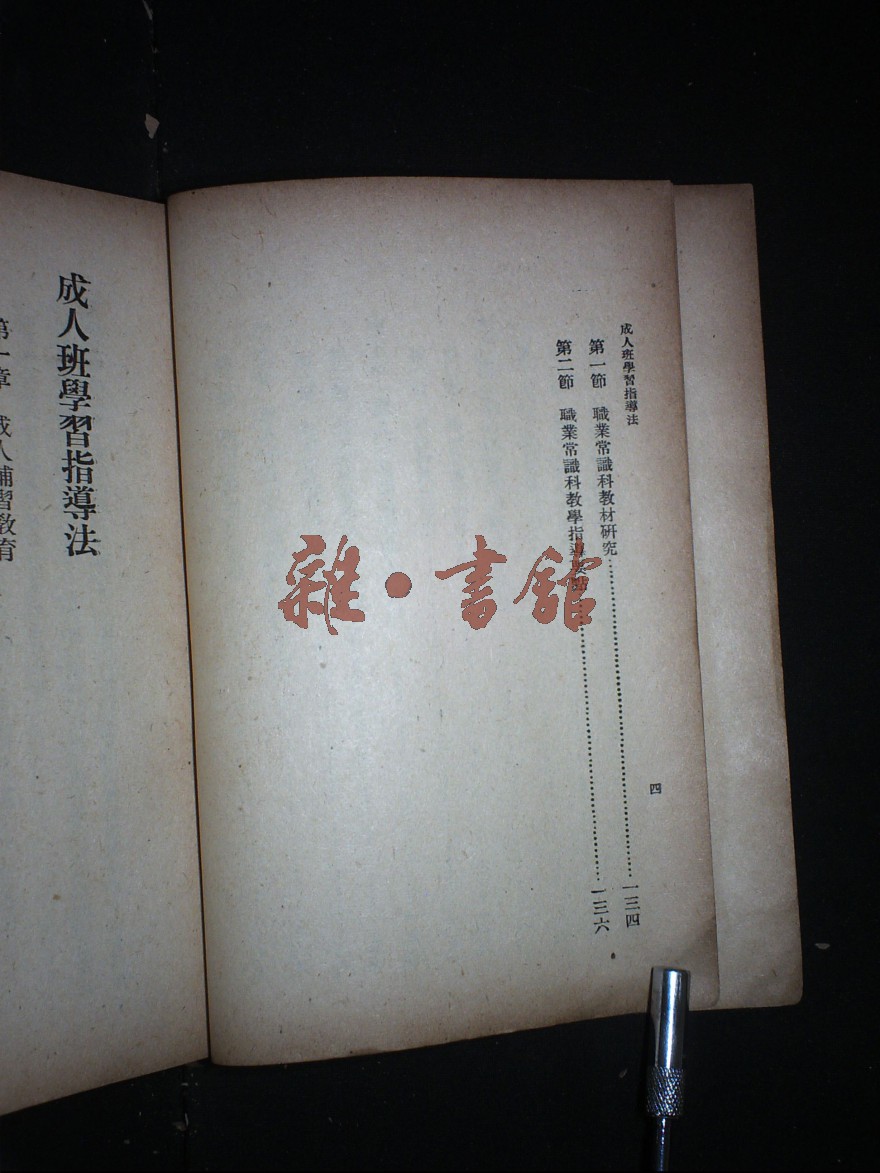 成人班學習指導法
第一節　職業常識科教材研究……一三四
第二節　職業常識科教學指導要點……一三六
四
成人班學習指導法
第一章　成人補習教育
雜·書館